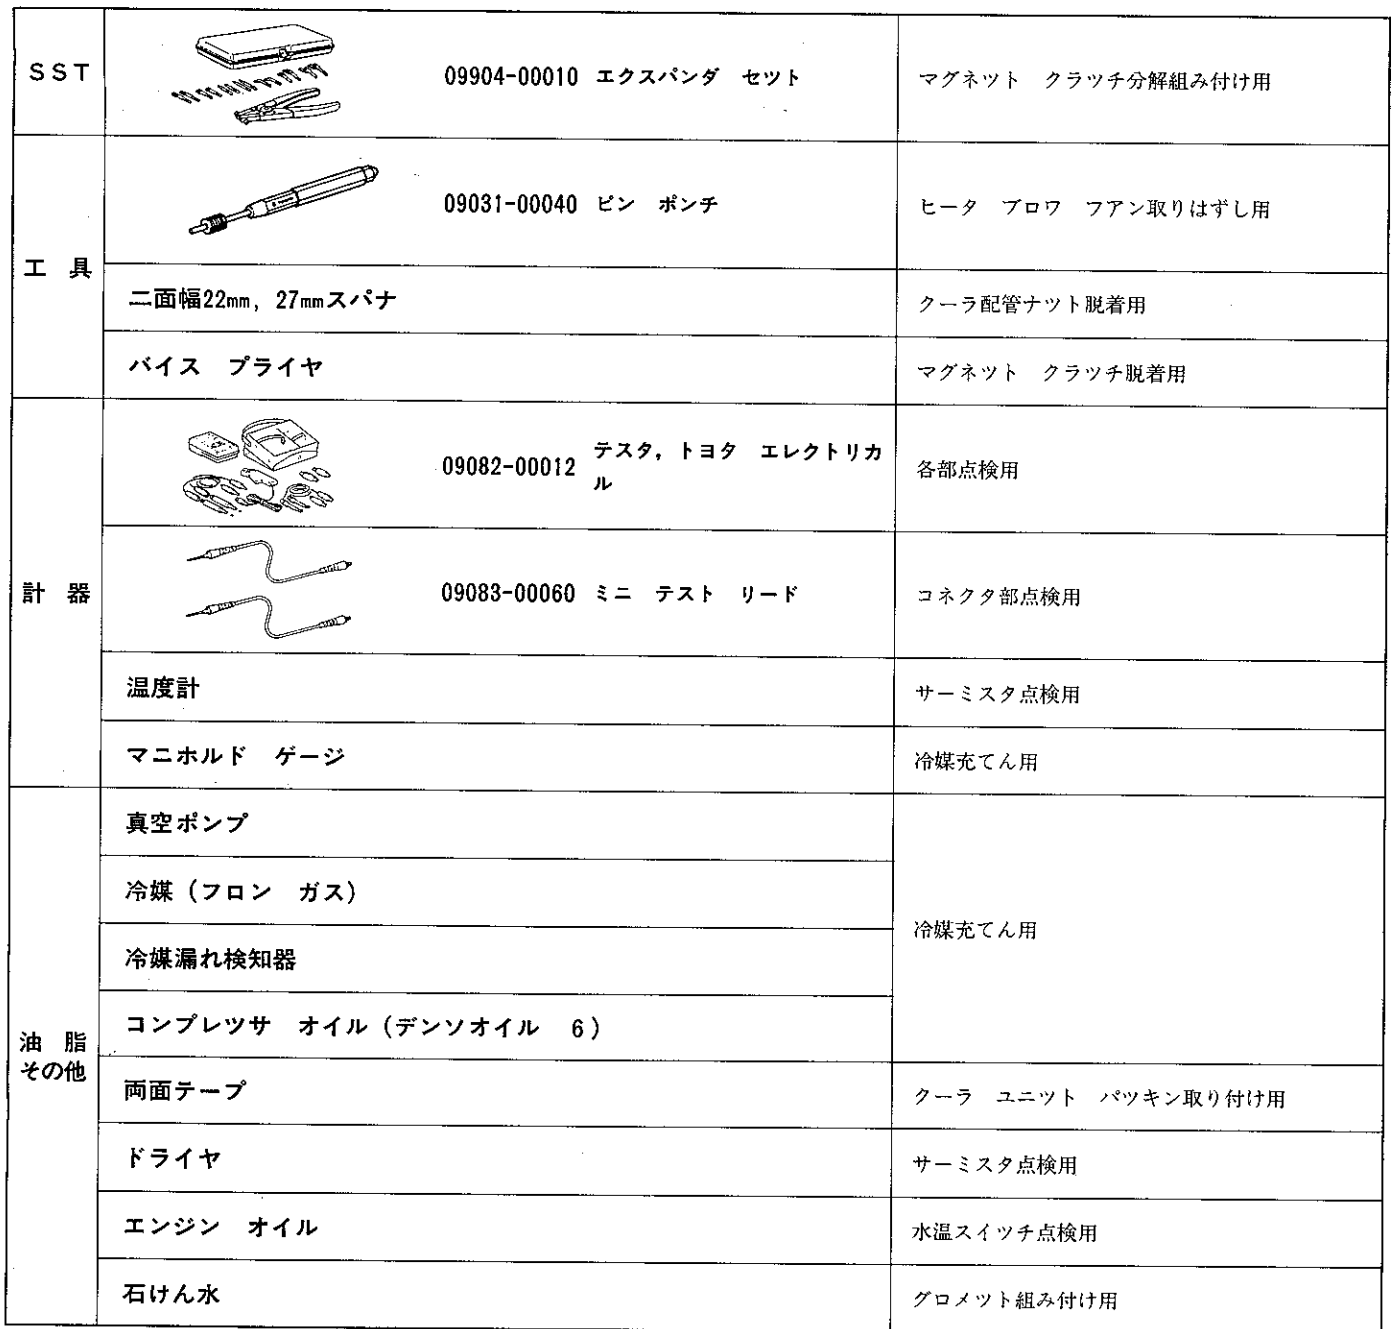 SST
09904-00010 エクスパンダ セツト
マグネツト クラツチ分解組み付け用
工 具
09031-00040 ピン ポンチ
ヒータ ブロワ フアン取りはずし用
二面幅22mm, 27mmスパナ
クーラ配管ナツト脱着用
バイス プライヤ
マグネツト クラツチ脱着用
計 器
09082-00012 テスタ, トヨタ エレクトリカ
ル
各部点検用
09083-00060 ミニ テスト リード
コネクタ部点検用
温度計
サーミスタ点検用
マニホルド ゲージ
冷媒充てん用
油 脂
その他
真空ポンプ
冷媒 (フロン ガス)
冷媒漏れ検知器
コンプレツサ オイル (デンソオイル 6)
冷媒充てん用
両面テープ
クーラ ユニツト パツキン取り付け用
ドライヤ
サーミスタ点検用
エンジン オイル
水温スイツチ点検用
石けん水
グロメツト組み付け用